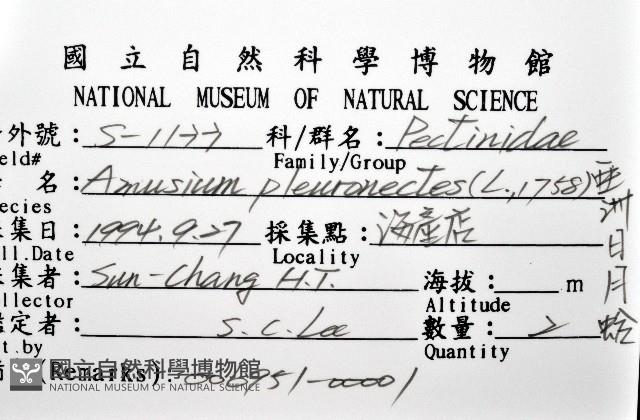 國立自然科學博物館
NATIONAL MUSEUM OF NATURAL SCIENCE
外號：S-1177 科/群名：Pectinidae
eld# Family/Group
名：Amusium pleuronectes (L., 1758) 亞洲日月蛤
ecies
集日：1994.9.27 採集點：海產店
ll.Date Locality
集者：Sun-Chang H.T. 海拔：m
llector Altitude
定者：S. C. Lee 數量：2
t.by Quantity
(Remarks)
國立自然科學博物館
NATIONAL MUSEUM OF NATURAL SCIENCE